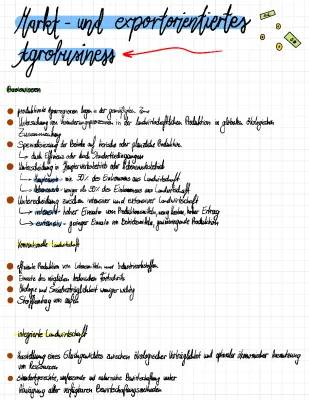 Markt- und exportorientiertes
Agrobusiness
Basiswissen
produktivste Agrarregionen liegen in der gemäßigten Zone
Untersuchung von Veränderungsprozessen in der landwirtschaftlichen Produktion im globalen ökologischen
Zusammenhang
Spezialisierung der Betriebe auf tierische oder pflanzliche Produktion
durch Effizienz oder durch Standortbedingungen
Unterscheidung in Haupterwerbsbetrieb oder Nebenerwerbsbetrieb
50% des Einkommens aus Landwirtschaft
weniger als 50% des Einkommens aus Landwirtschaft
Unterscheidung zwischen intensiver und extensiver Landwirtschaft
intensiv: hoher Einsatz von Produktionsmitteln, hoher Ertrag
extensiv: geringer Einsatz von Betriebsmitteln, Produktion
konventionelle Landwirtschaft
effiziente Produktion von Lebensmitteln und Industrierohstoffen
Einsatz des möglichen technischen Fortschritts
Ökologie und Sozialverträglichkeit weniger wichtig
Stoffeintrag von außen
integrierte Landwirtschaft
Herstellung eines Gleichgewichtes zwischen ökologischer Verträglichkeit und optimaler ökonomischer Ausnutzung
von Ressourcen
standortgerechte, umfassende und naturnahe Bewirtschaftung unter
Abwägung aller verfügbaren Bewirtschaftungsmethoden